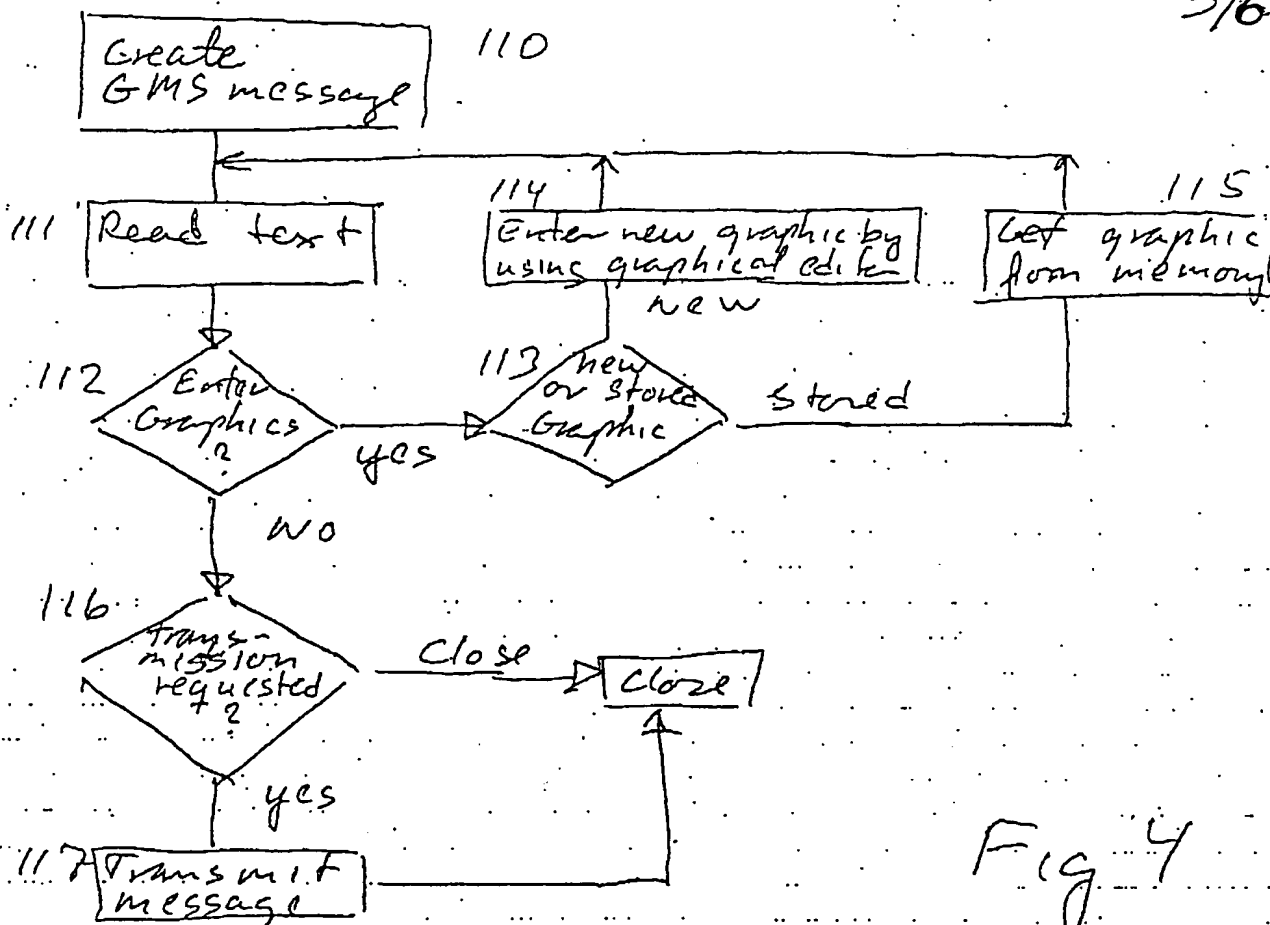 3/6
Create
GMS message
110
111
Read text
114
Enter new graphic by
using graphical editor
115
Get graphic
from memory
new
112
Enter
Graphics
?
yes
113
new
or stored
Graphic
stored
NO
116
Trans-
mission
requested
?
Close
Close
yes
117
Transmit
message
Fig 4